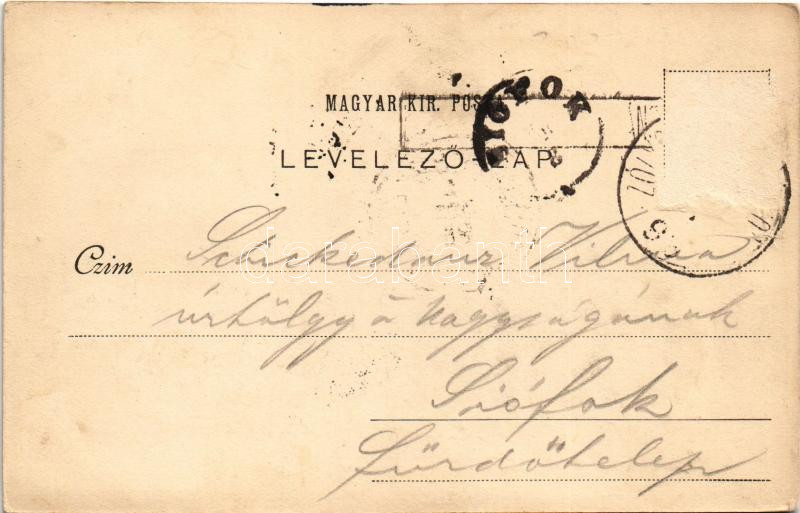 MAGYAR KIR. POSTA
SIÓFOK
LEVELEZŐ-LAP
Czim Schickedanz Vilma
úrhölgy ő nagyságának
Siófok
fürdőtelep
darabanth